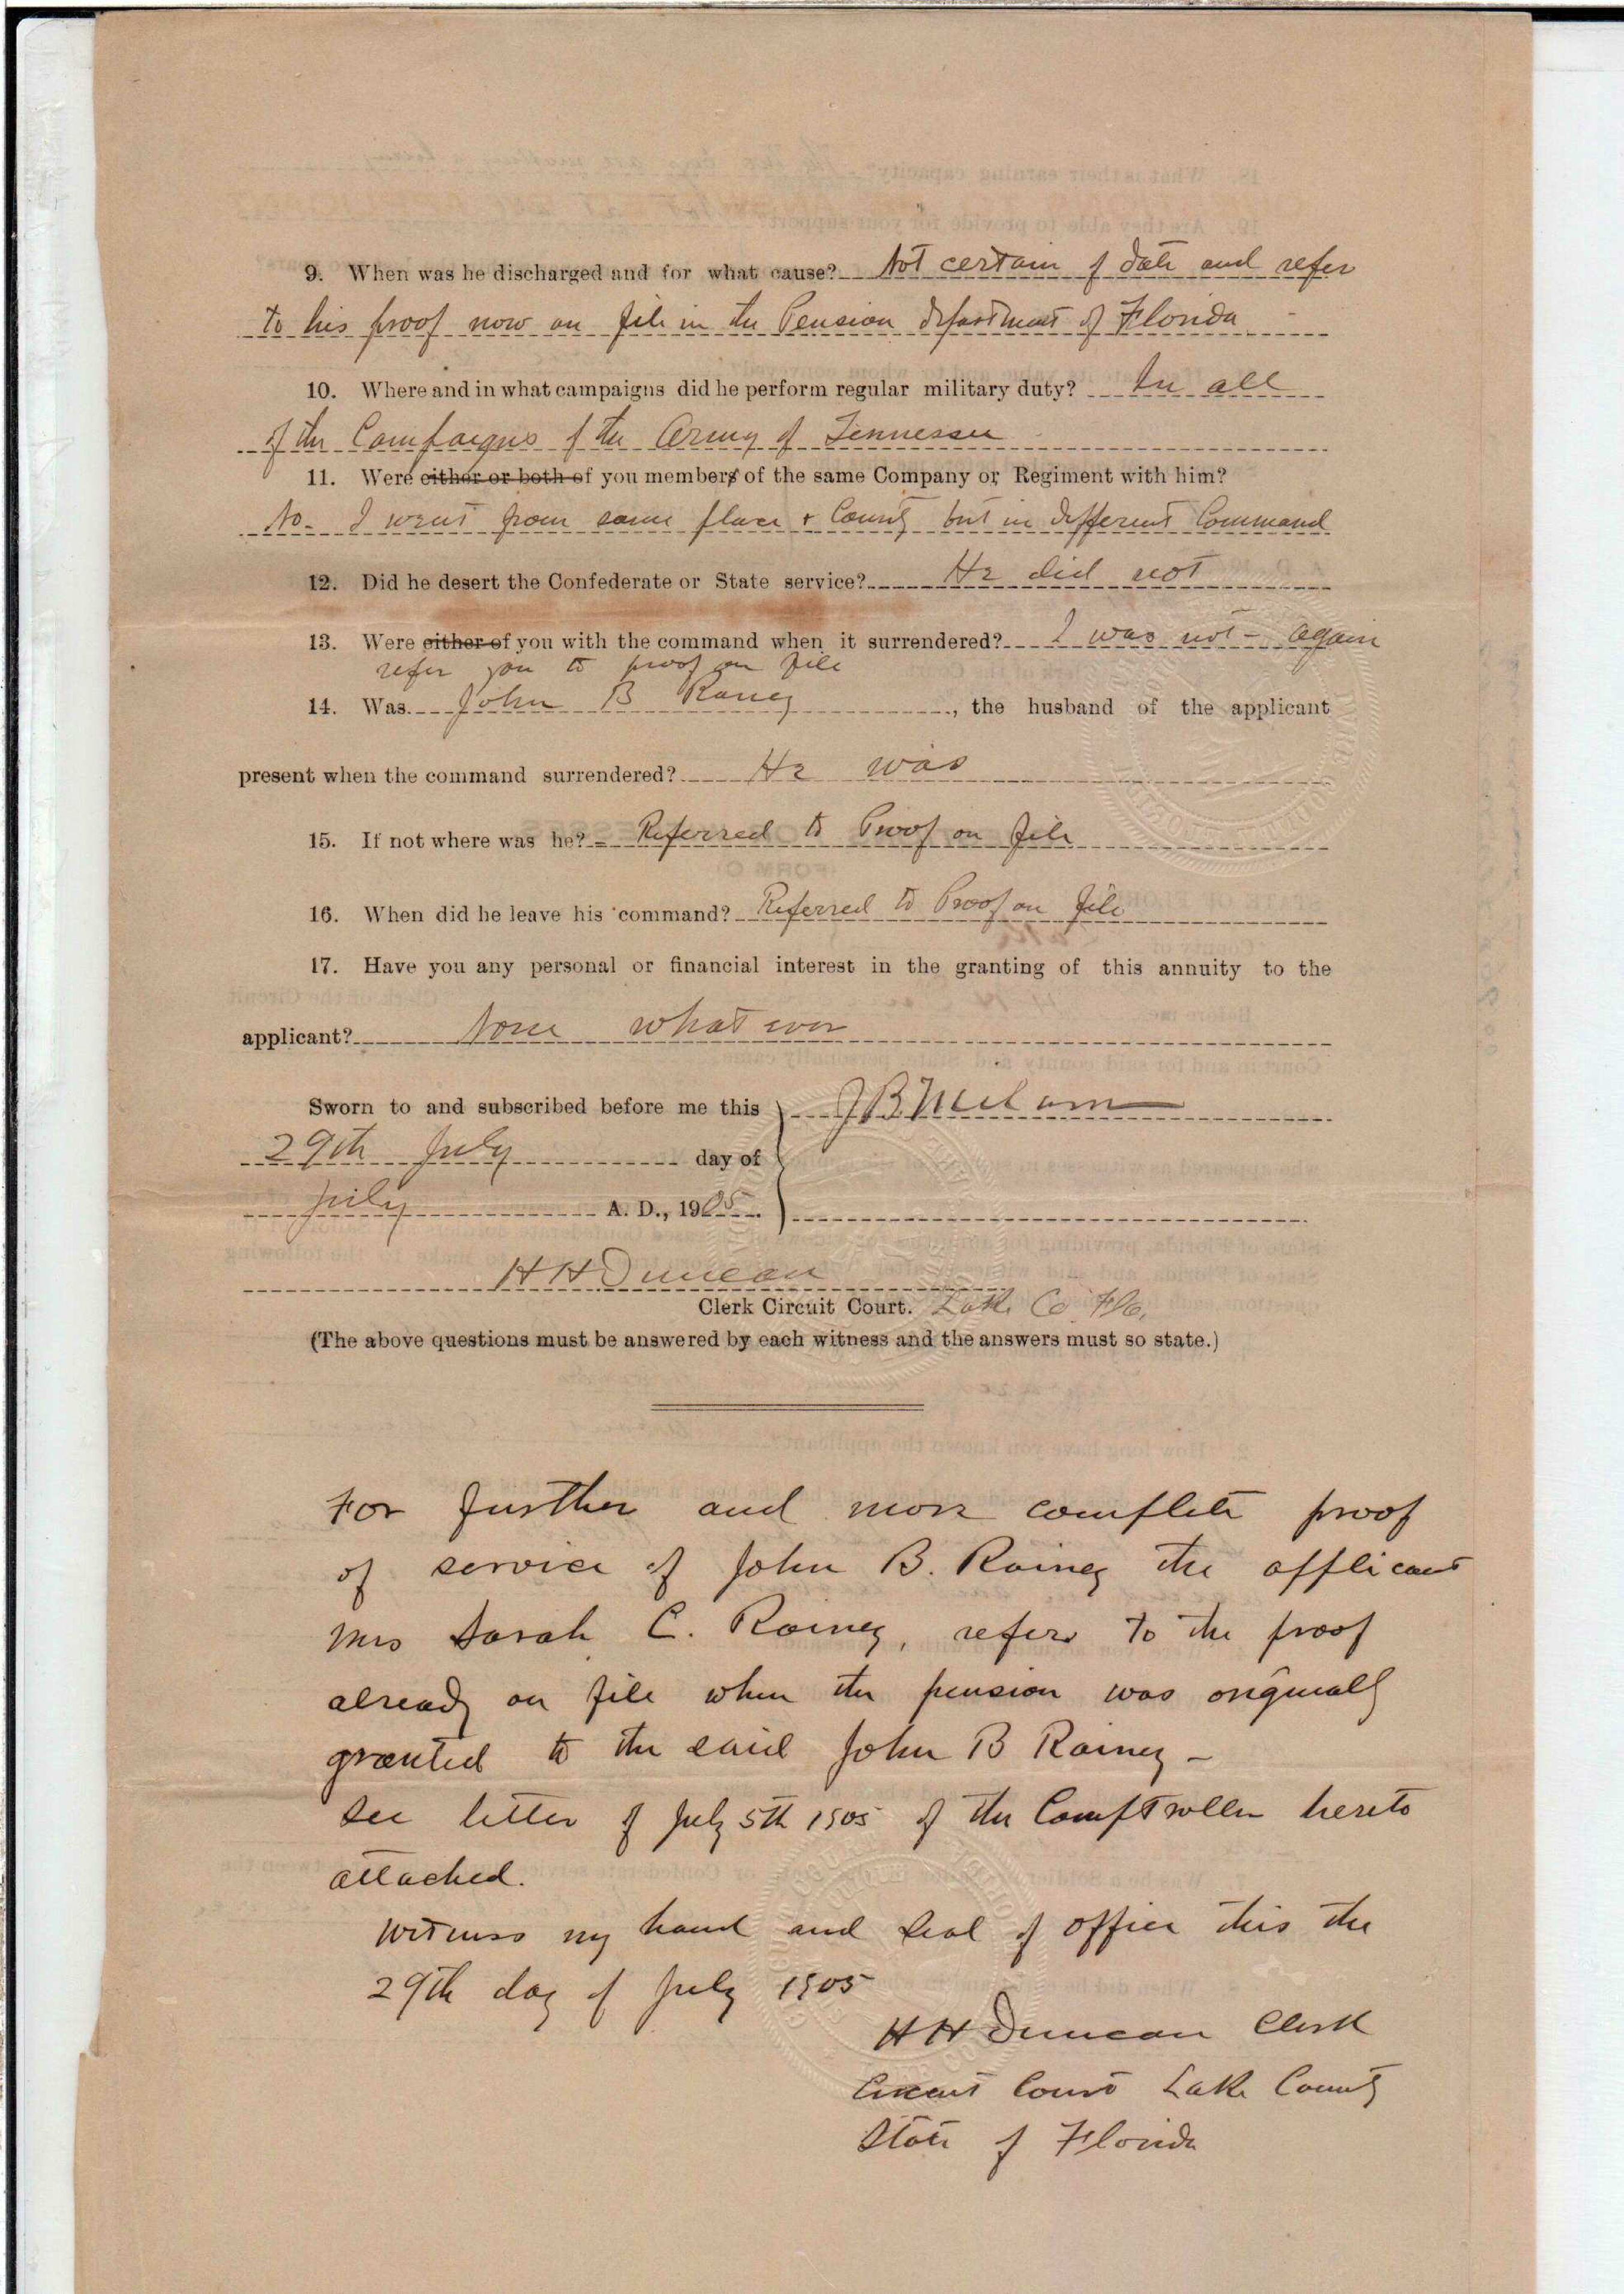 9. When was he discharged and for what cause? Not certain of date and refer
to his proof now on file in the Pension department of Florida
10. Where and in what campaigns did he perform regular military duty? In all
of the Campaigns of the Army of Tennessee
11. Were either or both of you members of the same Company or Regiment with him?
No. I went from same place & County but in different Command
12. Did he desert the Confederate or State service? He did not
13. Were either of you with the command when it surrendered? I was not - again
refer you to proof on file
14. Was John B Raney, the husband of the applicant
present when the command surrendered? He was
15. If not where was he? Referred to Proof on file
16. When did he leave his command? Referred to Proof on file
17. Have you any personal or financial interest in the granting of this annuity to the
applicant? None what ever
Sworn to and subscribed before me this } J B Milam
29th July day of
July A. D., 1905.
H H Duncan
Clerk Circuit Court. Lake Co Fla,
(The above questions must be answered by each witness and the answers must so state.)
For further and more complete proof
of service of John B. Rainey the applicant
Mrs Sarah C. Rainey, refers to the proof
already on file when the pension was originally
granted to the said John B Rainey -
See letter of July 5th 1905 of the Comptroller hereto
attached.
Witness my hand and seal of office this the
29th day of July 1905
H H Duncan Clerk
Circuit Court Lake County
State of Florida